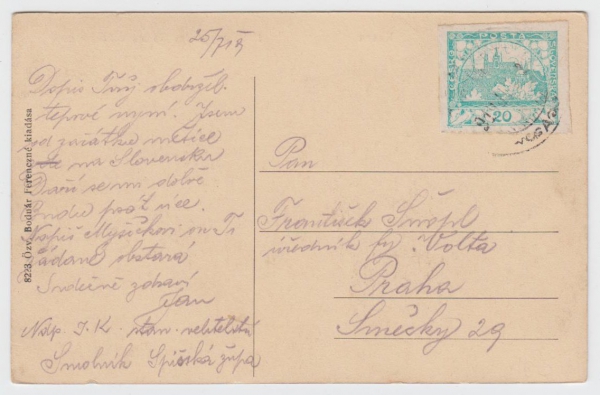 25/7 19
Dopis Tvůj obdržel
teprve nyní. Jsem
od začátku měsíce
na Slovensku
Daří se mi dobře
Budu psát více.
Napiš Myšičkovi on Ti
žádané obstará
Srdečně zdraví
Jan
Náp. J. K. stan. velitelství
Smolník Spišská župa
82/3 Özv. Bodnár Ferenczné kiadása
POŠTA
20
Pan
František
úředník fy Volta
Praha
Smečky 29